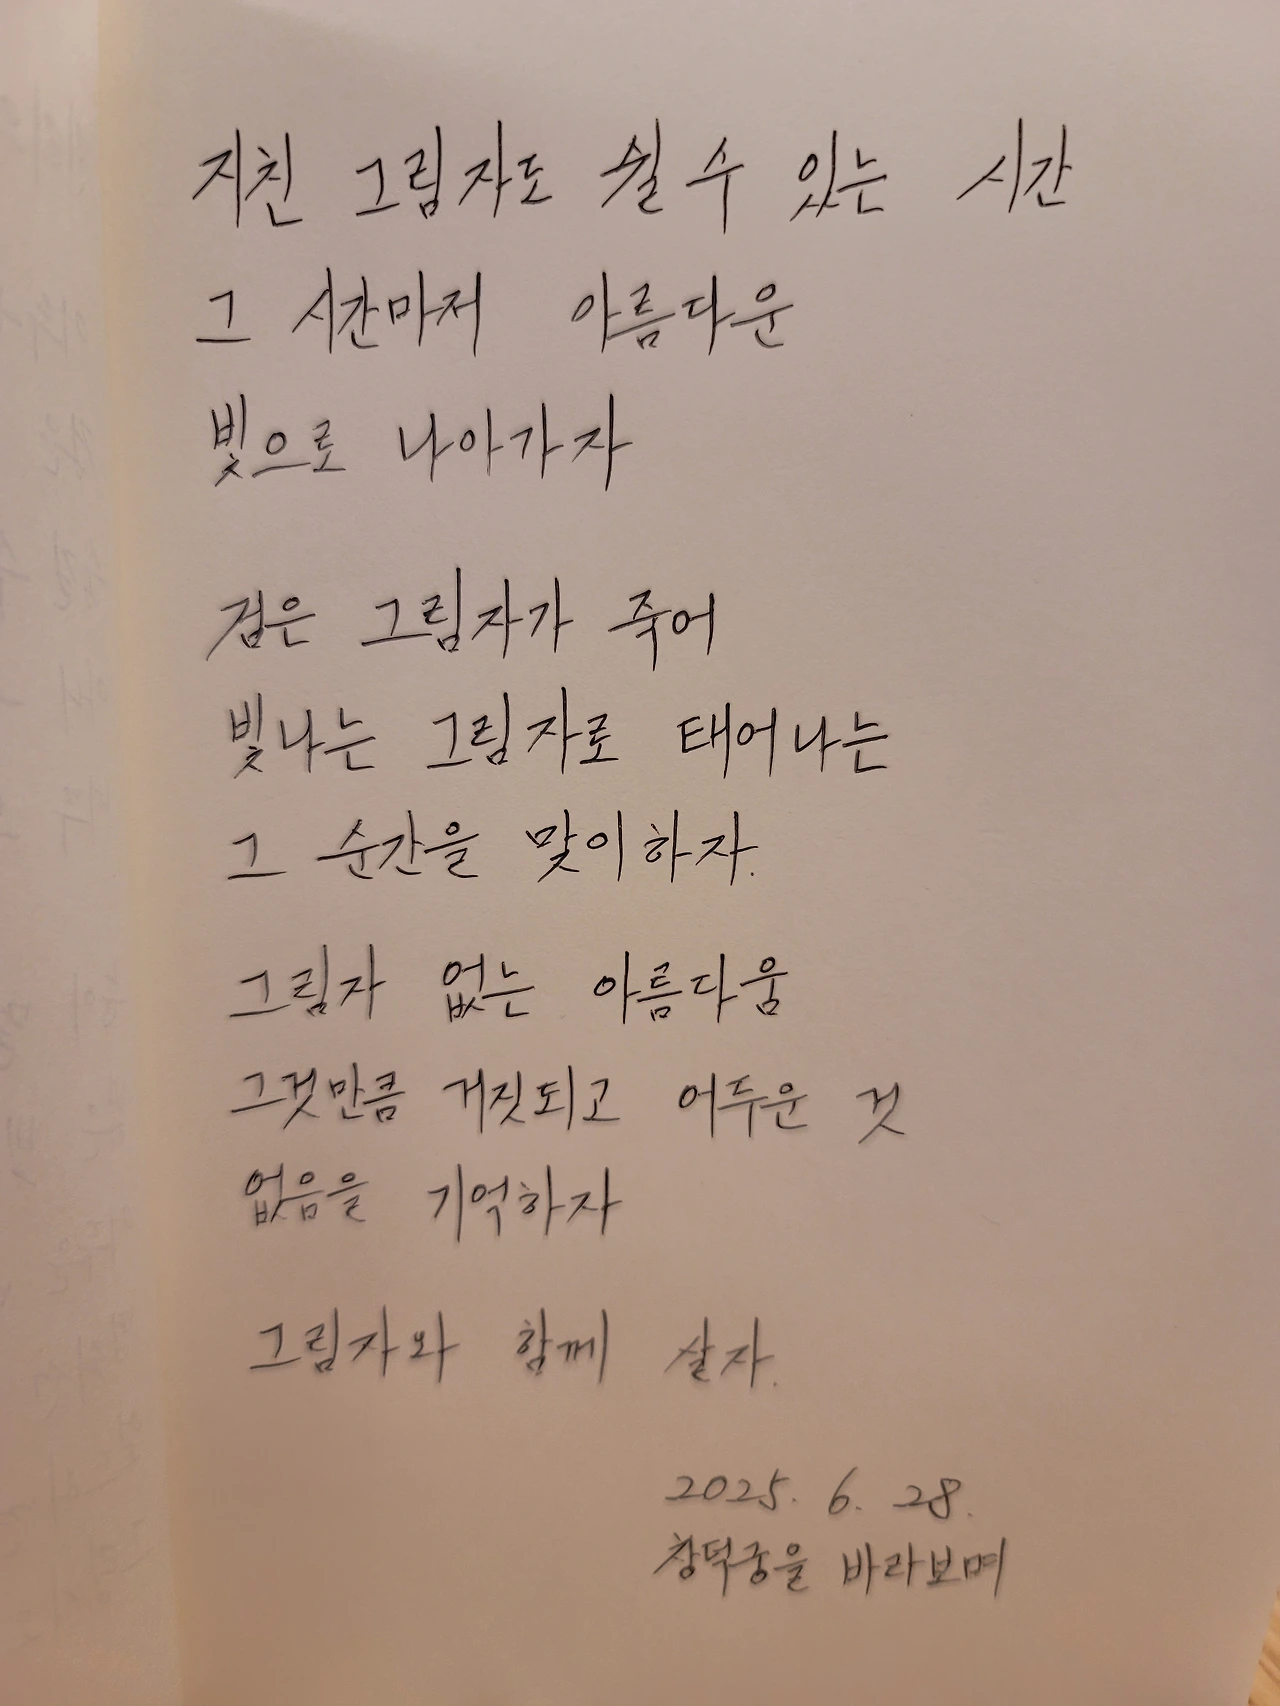 지친 그림자도 쉴 수 있는 시간
그 시간마저 아름다운
빛으로 나아가자
검은 그림자가 죽어
빛나는 그림자로 태어나는
그 순간을 맞이하자.
그림자 없는 아름다움
그것만큼 거짓되고 어두운 것
없음을 기억하자
그림자와 함께 살자.
2025. 6. 28.
창덕궁을 바라보며